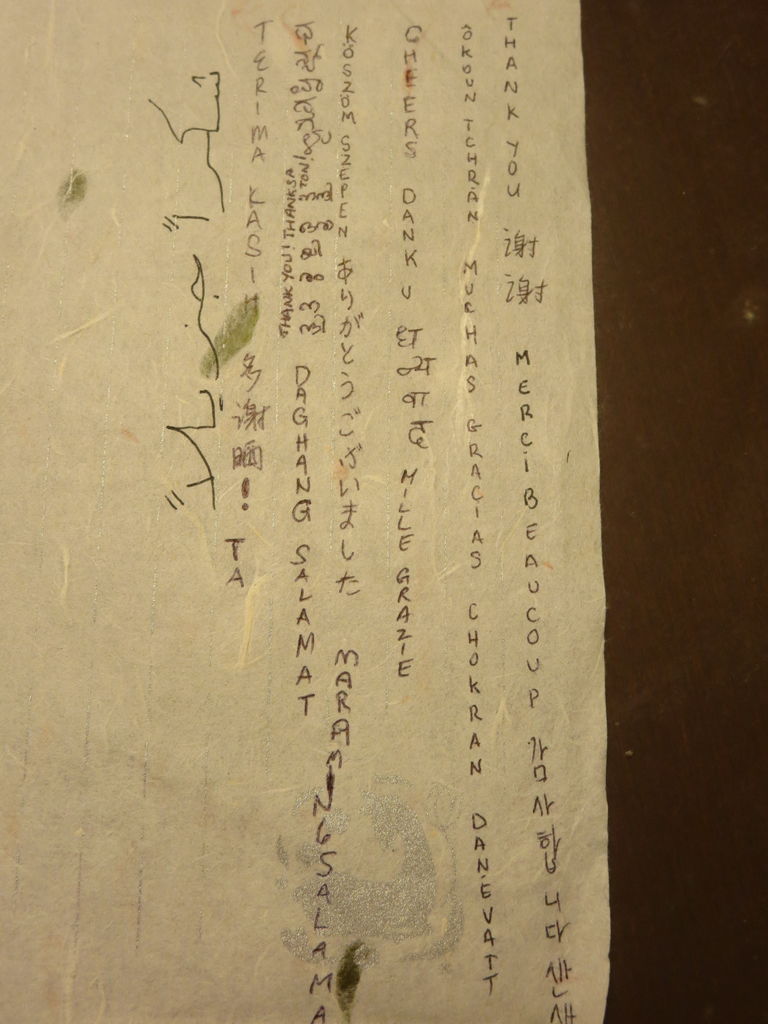 THANK YOU 谢谢 MERCI BEAUCOUP 감사합니다
ÔKOUN TCHRAN MUCHAS GRACIAS CHOKRAN DANEVATT
CHEERS DANK U धन्यवाद MILLE GRAZIE
KÖSZÖM SZEPEN ありがとうございました MARAMING SALAMA
THANK YOU! THANKSA TON! DAGHANG SALAMAT
TERIMA KASIH 多謝晒! TA